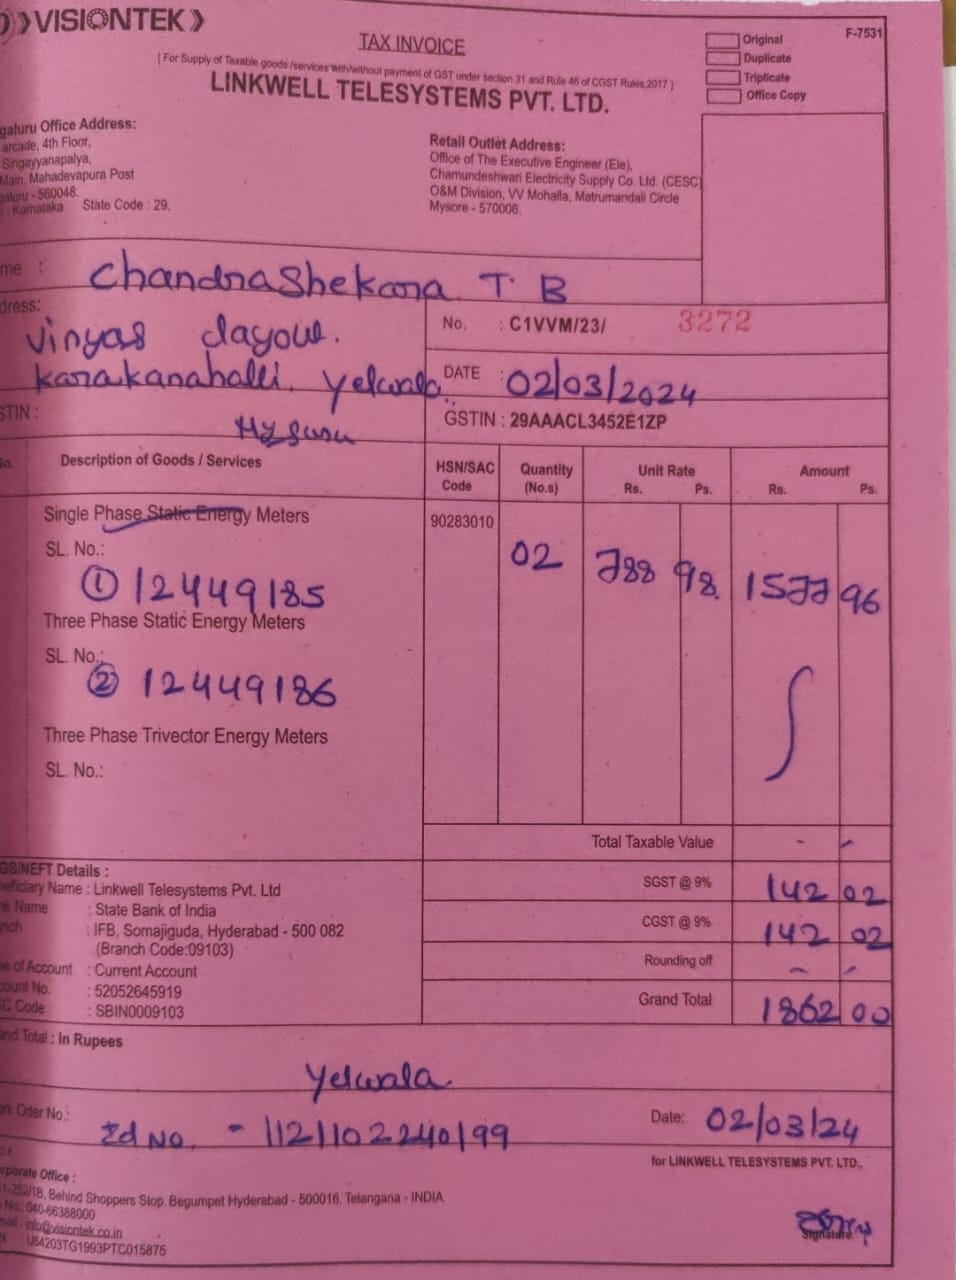 VISIONTEK
TAX INVOICE
F-7531
Original
Duplicate
Triplicate
Office Copy
( For Supply of Taxable goods /services with/without payment of GST under section 31 and Rule 46 of CGST Rules,2017 )
LINKWELL TELESYSTEMS PVT. LTD.
galuru Office Address:
arcade, 4th Floor,
Singayyanapalya,
Main, Mahadevapura Post
galuru - 560048.
: Karnataka State Code : 29.
Retail Outlet Address:
Office of The Executive Engineer (Ele),
Chamundeshwari Electricity Supply Co. Ltd. (CESC)
O&M Division, VV Mohalla, Matrumandali Circle
Mysore - 570006.
me : Chandrashekara T. B
dress:
vinyas layout.
karakanahalli. Yelwala.
Mysuru
No. : C1VVM/23/ 3272
DATE : 02/03/2024
STIN :
GSTIN : 29AAACL3452E1ZP
No. Description of Goods / Services HSN/SAC Code Quantity (No.s) Unit Rate Rs. Ps. Amount Rs. Ps.
Single Phase Static Energy Meters 90283010 02 788 98. 1577 96
SL. No.:
① 12449185
Three Phase Static Energy Meters
SL. No.:
② 12449186
Three Phase Trivector Energy Meters
SL. No.:
Total Taxable Value - -
GS/NEFT Details :
neficiary Name : Linkwell Telesystems Pvt. Ltd
nk Name : State Bank of India
nch : IFB, Somajiguda, Hyderabad - 500 082
(Branch Code:09103)
pe of Account : Current Account
count No. : 52052645919
SC Code : SBIN0009103
SGST @ 9% 142 02
CGST @ 9% 142 02
Rounding off - -
Grand Total 1862 00
and Total : In Rupees
Yelwala
ork Oder No.:
Id No. - 1121102240199
Date: 02/03/24
for LINKWELL TELESYSTEMS PVT. LTD.,
rporate Office :
1-252/18, Behind Shoppers Stop, Begumpet Hyderabad - 500016, Telangana - INDIA
No.: 040-66388000
mail : info@visiontek.co.in
N : U64203TG1993PTC015875
Signature